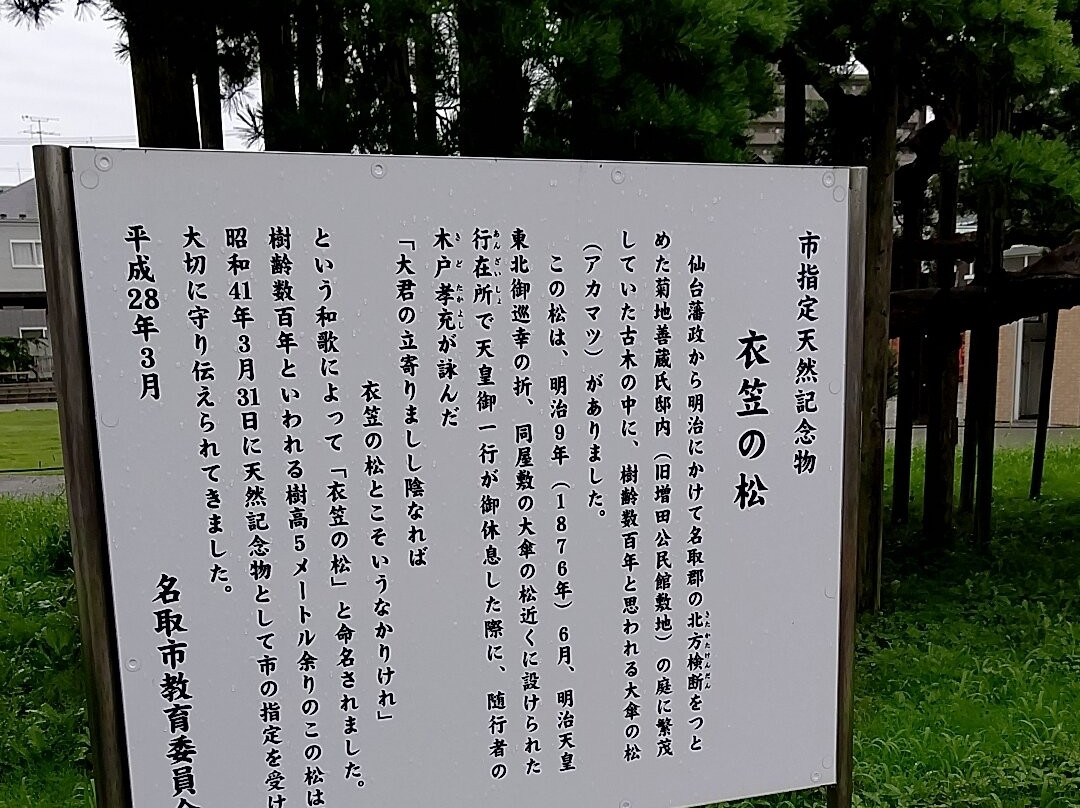 市指定天然記念物
衣笠の松
仙台藩政から明治にかけて名取郡の北方検断をつと
きたかたけんだん
めた菊地善蔵氏邸内（旧増田公民館敷地）の庭に繁茂
していた古木の中に、樹齢数百年と思われる大傘の松
（アカマツ）がありました。
この松は、明治9年（1876年）6月、明治天皇
東北御巡幸の折、同屋敷の大傘の松近くに設けられた
行在所で天皇御一行が御休息した際に、随行者の
あんざいしょ
木戸孝充が詠んだ
きどたかよし
「大君の立寄りましし陰なれば
衣笠の松とこそいうなかりけれ」
という和歌によって「衣笠の松」と命名されました。
樹齢数百年といわれる樹高5メートル余りのこの松は
昭和41年3月31日に天然記念物として市の指定を受け
大切に守り伝えられてきました。
平成28年3月
名取市教育委員会